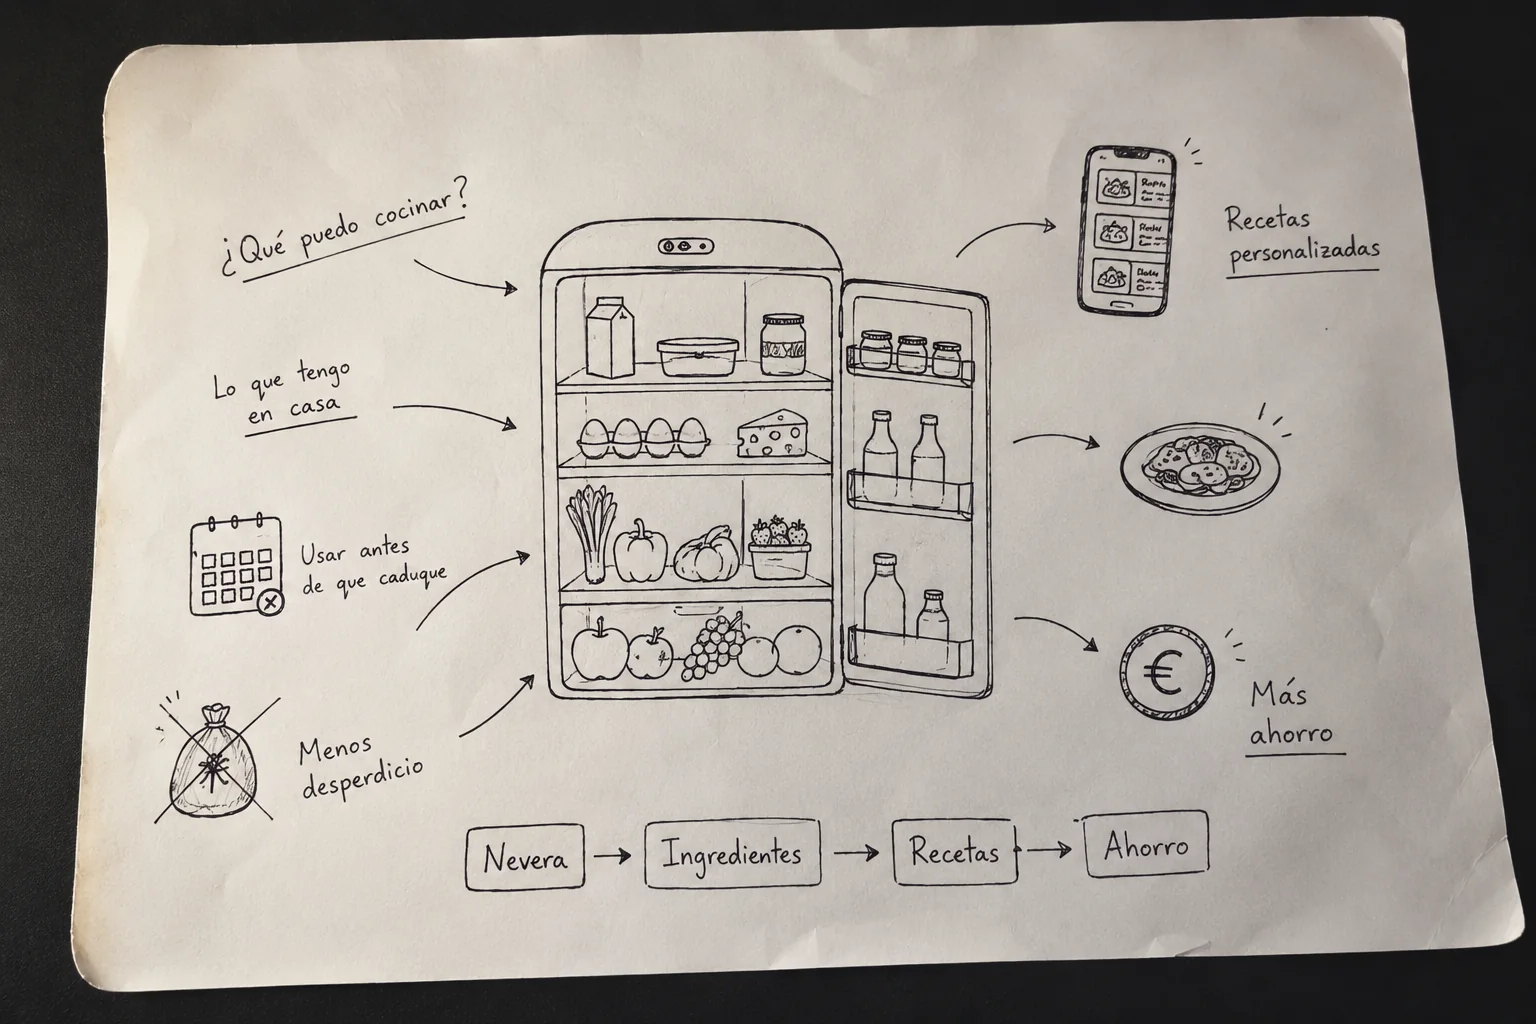 ¿Qué puedo cocinar?
Lo que tengo
en casa
Usar antes
de que caduque
Menos
desperdicio
Recetas
personalizadas
€
Más
ahorro
Nevera
Ingredientes
Recetas
Ahorro